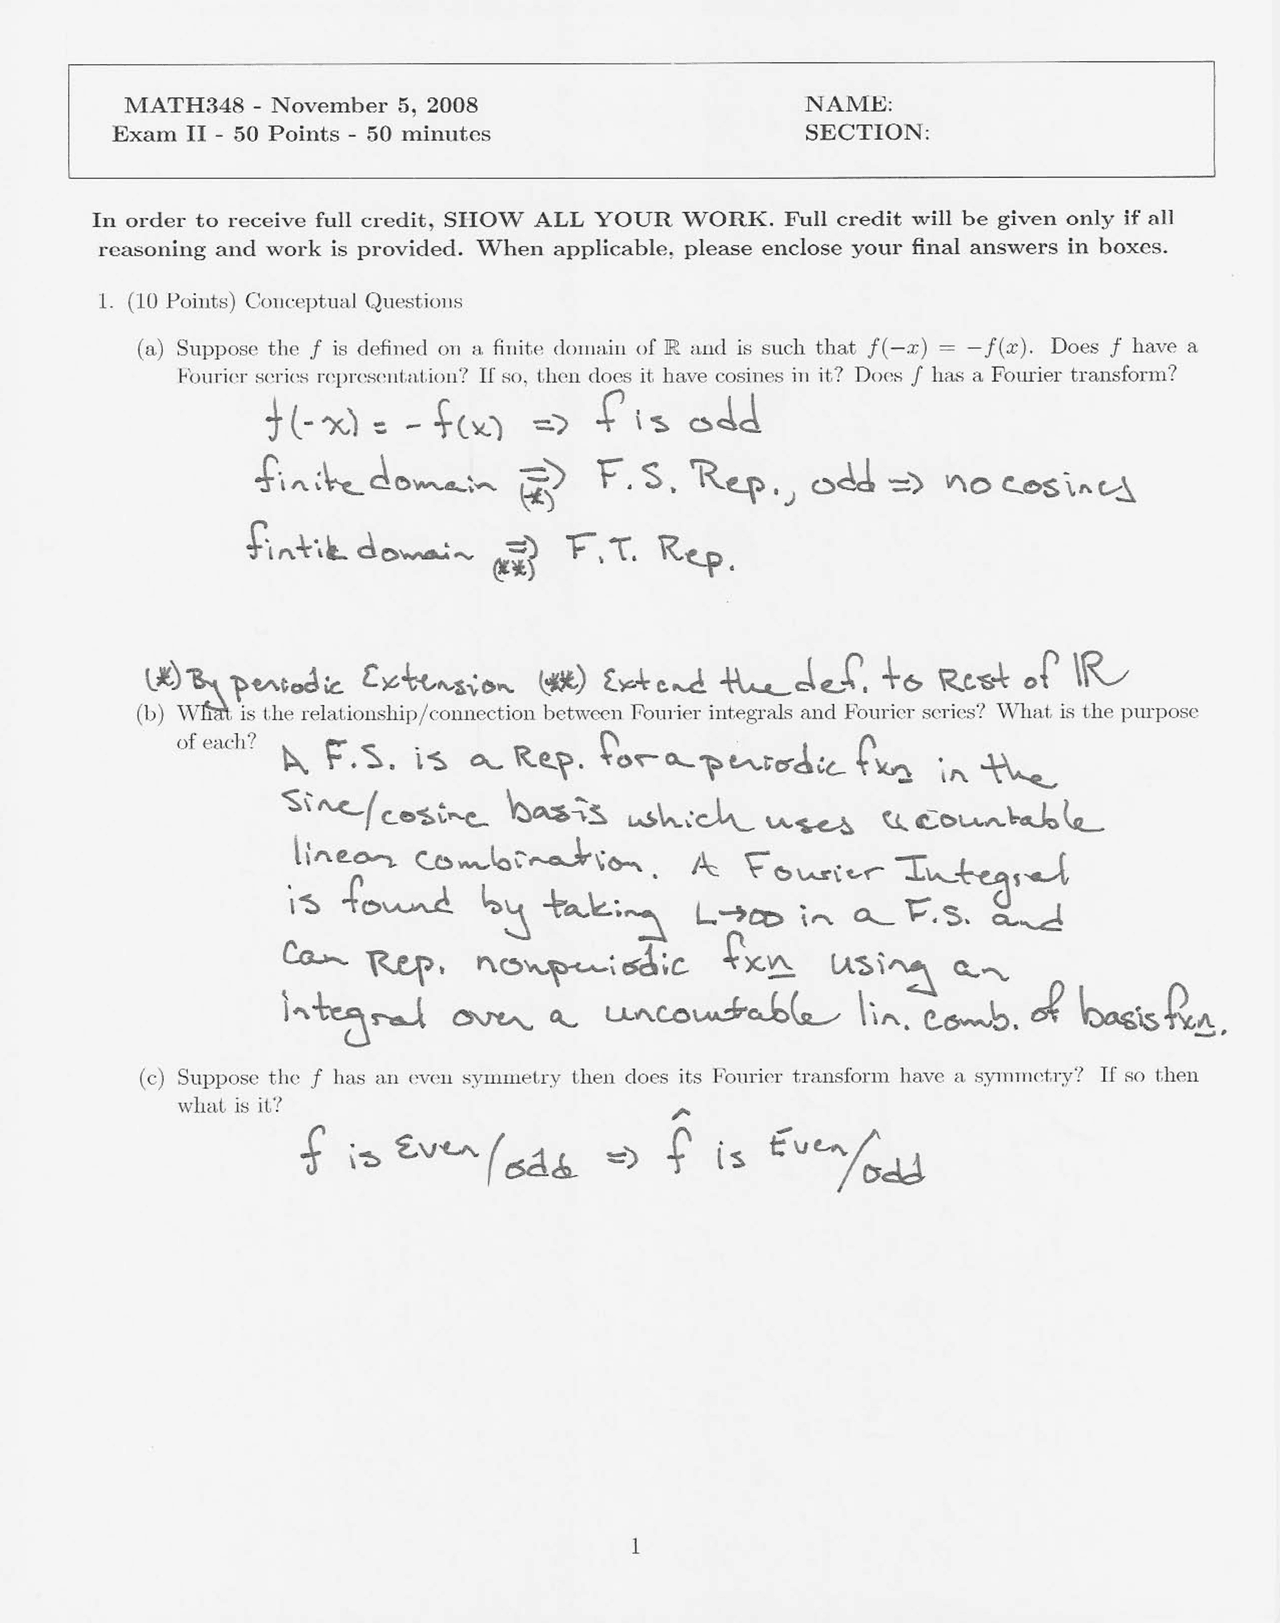 MATH348 - November 5, 2008
NAME:
Exam II - 50 Points - 50 minutes
SECTION:
In order to receive full credit, SHOW ALL YOUR WORK. Full credit will be given only if all
reasoning and work is provided. When applicable, please enclose your final answers in boxes.
1. (10 Points) Conceptual Questions
(a) Suppose the f is defined on a finite domain of ℝ and is such that f(−x) = −f(x). Does f have a
Fourier series representation? If so, then does it have cosines in it? Does f has a Fourier transform?
f(-x) = -f(x) => f is odd
finite domain =>(*) F.S. Rep., odd => no cosines
fintite domain =>(**) F.T. Rep.
(*) By periodic Extension (**) Extend the def. to Rest of ℝ
(b) What is the relationship/connection between Fourier integrals and Fourier series? What is the purpose
of each?
A F.S. is a Rep. for a periodic fxn in the
sine/cosine basis which uses a countable
linear combination. A Fourier Integral
is found by taking L→∞ in a F.S. and
can Rep. nonperiodic fxn using an
integral over a uncountable lin. comb. of basis fxn.
(c) Suppose the f has an even symmetry then does its Fourier transform have a symmetry? If so then
what is it?
f is Even/odd => f̂ is Even/odd
1